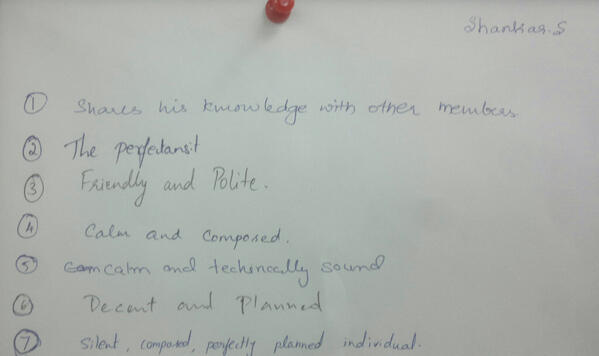 Shankar.S
① Shares his knowledge with other members.
② The perfectansit
③ Friendly and Polite.
④ Calm and composed.
⑤ calm and techincally sound
⑥ Decent and Planned
⑦ Silent, composed, perfectly planned individual.